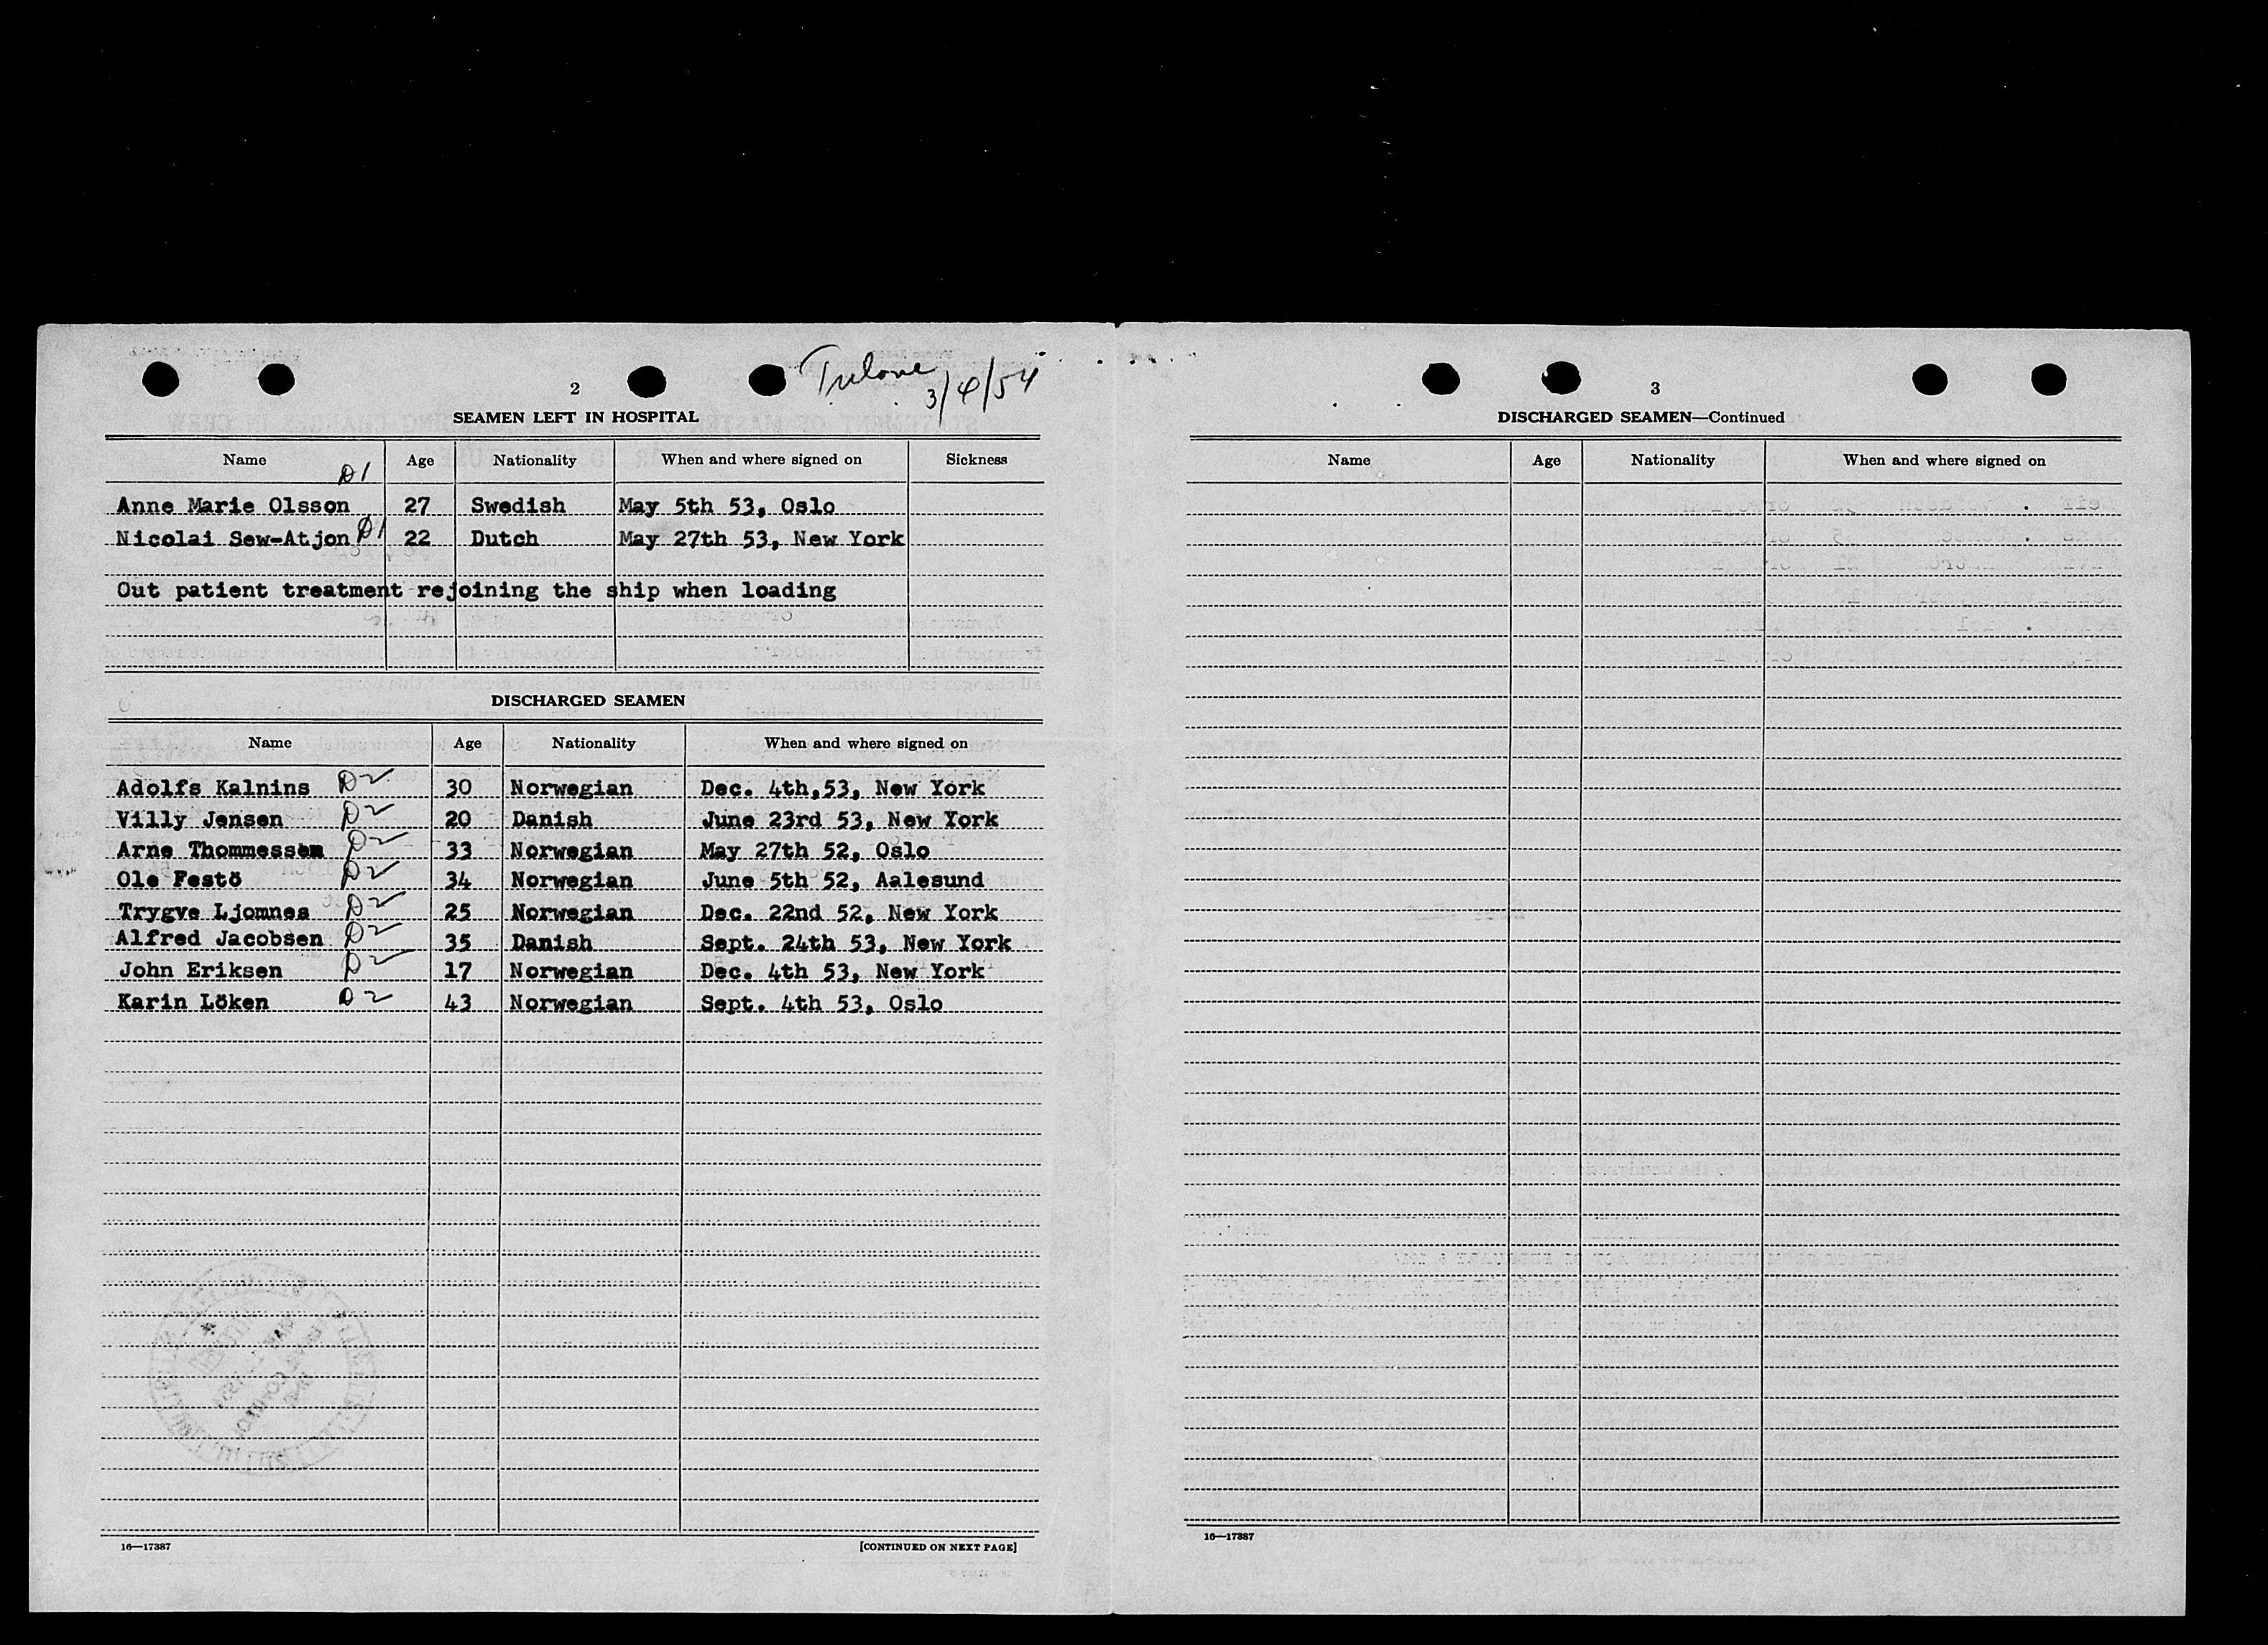 2
Tulane
3/4/54
SEAMEN LEFT IN HOSPITAL
Name Age Nationality When and where signed on Sickness
D1
Anne Marie Olsson 27 Swedish May 5th 53, Oslo
Nicolai Sew-Atjon D1 22 Dutch May 27th 53, New York
Out patient treatment rejoining the ship when loading
DISCHARGED SEAMEN
Name Age Nationality When and where signed on
Adolfs Kalnins D2 30 Norwegian Dec. 4th,53, New York
Villy Jensen D2 20 Danish June 23rd 53, New York
Arne Thommessen D2 33 Norwegian May 27th 52, Oslo
Ole Festö D2 34 Norwegian June 5th 52, Aalesund
Trygve Ljomnes D2 25 Norwegian Dec. 22nd 52, New York
Alfred Jacobsen D2 35 Danish Sept. 24th 53, New York
John Eriksen D2 17 Norwegian Dec. 4th 53, New York
Karin Löken D2 43 Norwegian Sept. 4th 53, Oslo
16—17387 [CONTINUED ON NEXT PAGE]
3
DISCHARGED SEAMEN—Continued
Name Age Nationality When and where signed on
16—17387